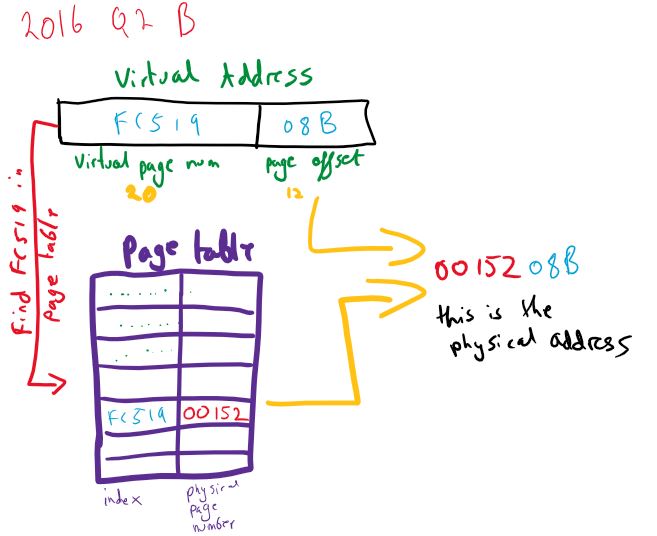 2016 Q2 B
Virtual Address
FC519 08B
Virtual page num page offset
20 12
Find FC519 in
page table
page table
FC519 00152
index physical
page
number
00152 08B
this is the
physical address